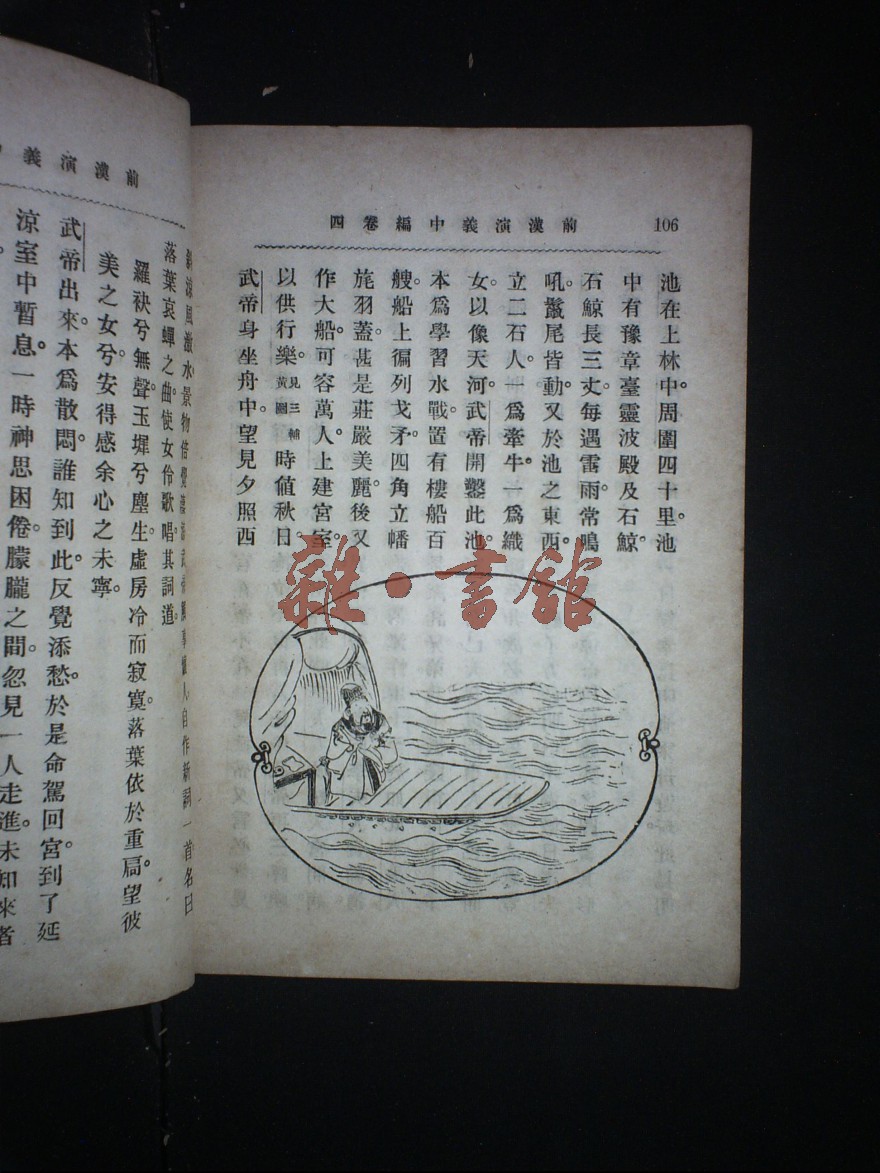 前漢演義中編卷四
106
池在上林中。周圍四十里。池
中有豫章臺靈波殿及石鯨。
石鯨長三丈。每遇雷雨。常鳴
吼。鬣尾皆動。又於池之東西。
立二石人。一爲牽牛。一爲織
女。以像天河。武帝開鑿此池。
本爲學習水戰。置有樓船百
艘。船上徧列戈矛。四角立幡
旄羽蓋。甚是莊嚴美麗。後又
作大船。可容萬人。上建宮室。
以供行樂。見三輔黃圖時値秋日。
武帝身坐舟中。望見夕照西
雜·書館
前漢演義
涼風激水景物
人自作新詞一首名曰
落葉哀蟬之曲。使女伶歌唱其詞道。
羅袂兮無聲。玉墀兮塵生。虛房冷而寂寞。落葉依於重扃。望彼
美之女兮。安得感余心之未寧。
武帝出來。本爲散悶。誰知到此。反覺添愁。於是命駕回宮。到了延
涼室中暫息。一時神思困倦。朦朧之間。忽見一人走進。未知來者